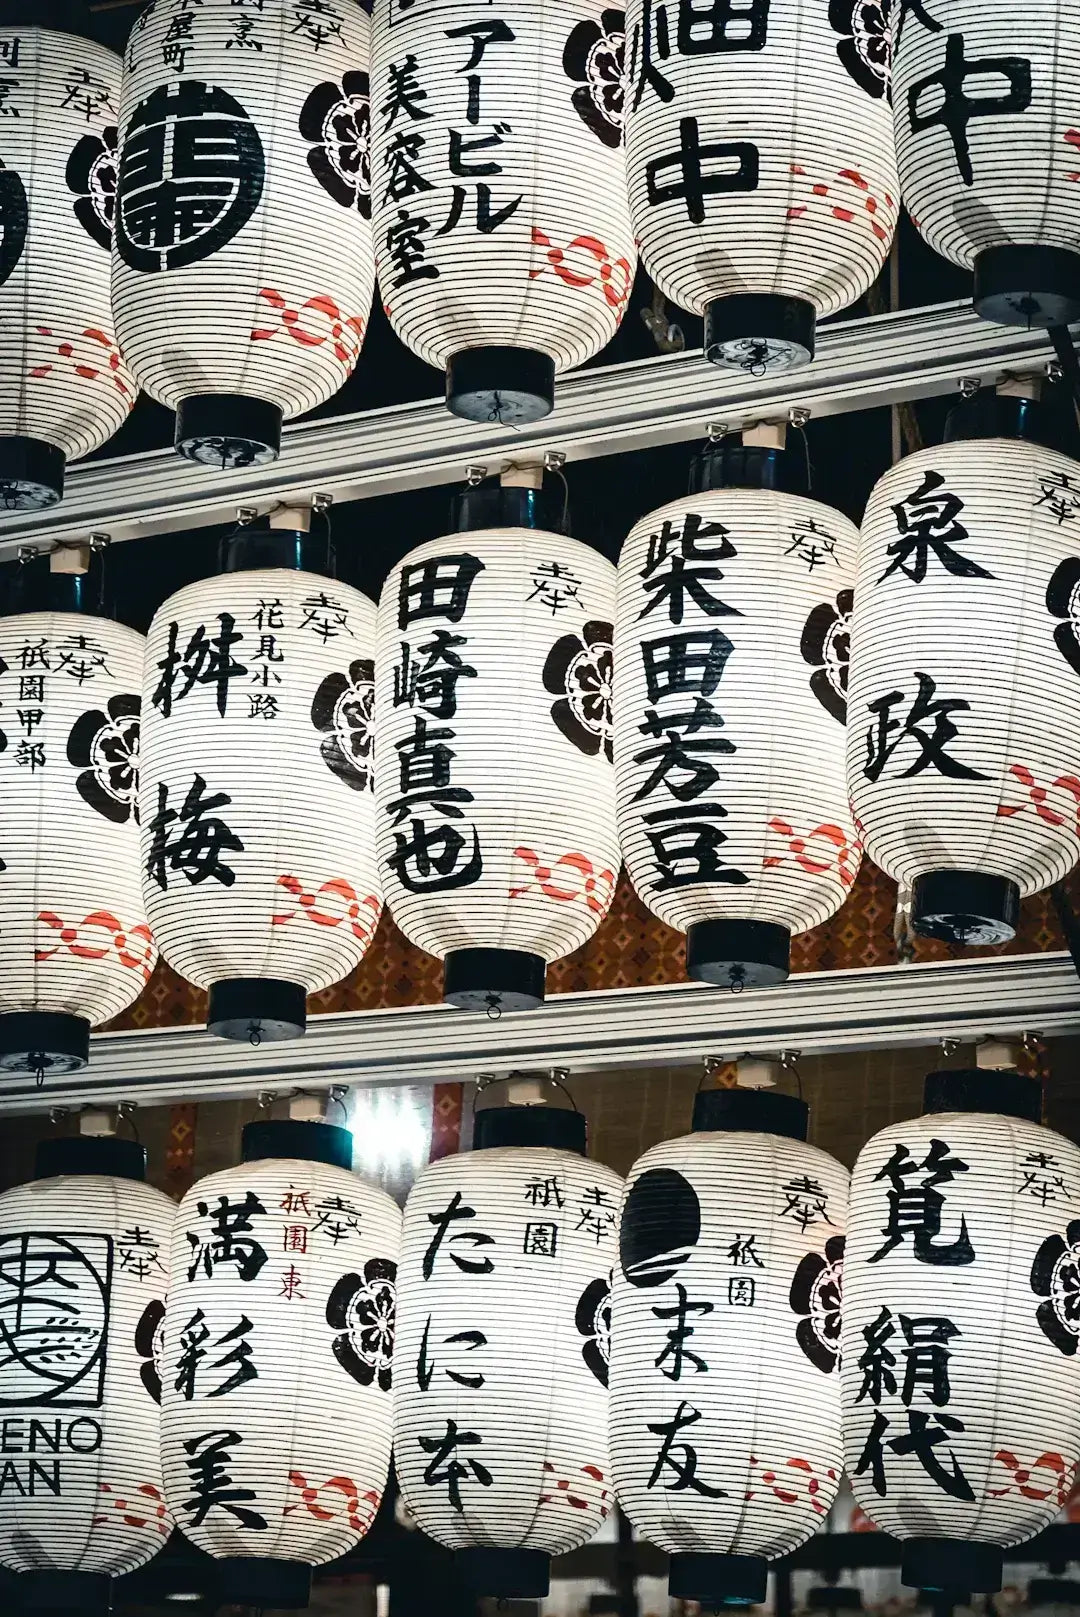 奉
奉
屋町
奉
アービル
美容室
畑中
中
奉
祇園甲部
奉
花見小路
桝梅
奉
田崎真也
奉
柴田芳豆
奉
泉政
奉
ENO
AN
奉
祇園東
満彩美
奉
祇園
たに本
奉
祇園
末友
奉
筧絹代